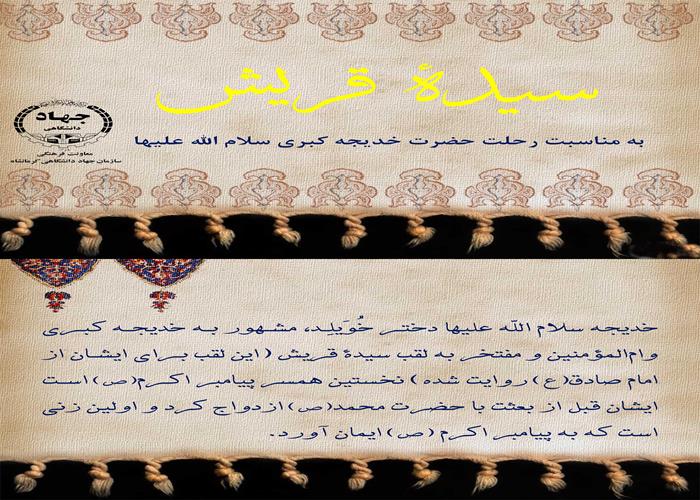 سیدهٔ قریش
به مناسبت رحلت حضرت خدیجه کبری سلام الله علیها
جهاد
دانشگاهی
معاونت فرهنگی
سازمان جهاد دانشگاهی کرمانشاه
خدیجه سلام اللّه علیها دختر خُوَیلِد، مشهور به خدیجه کبری
و‌ام‌المؤمنین و مفتخر به لقب سیدهٔ قریش (این لقب برای ایشان از
امام صادق(ع) روایت شده) نخستین همسر پیامبر اکرم(ص) است
ایشان قبل از بعثت با حضرت محمد(ص) ازدواج کرد و اولین زنی
است که به پیامبر اکرم (ص) ایمان آورد.